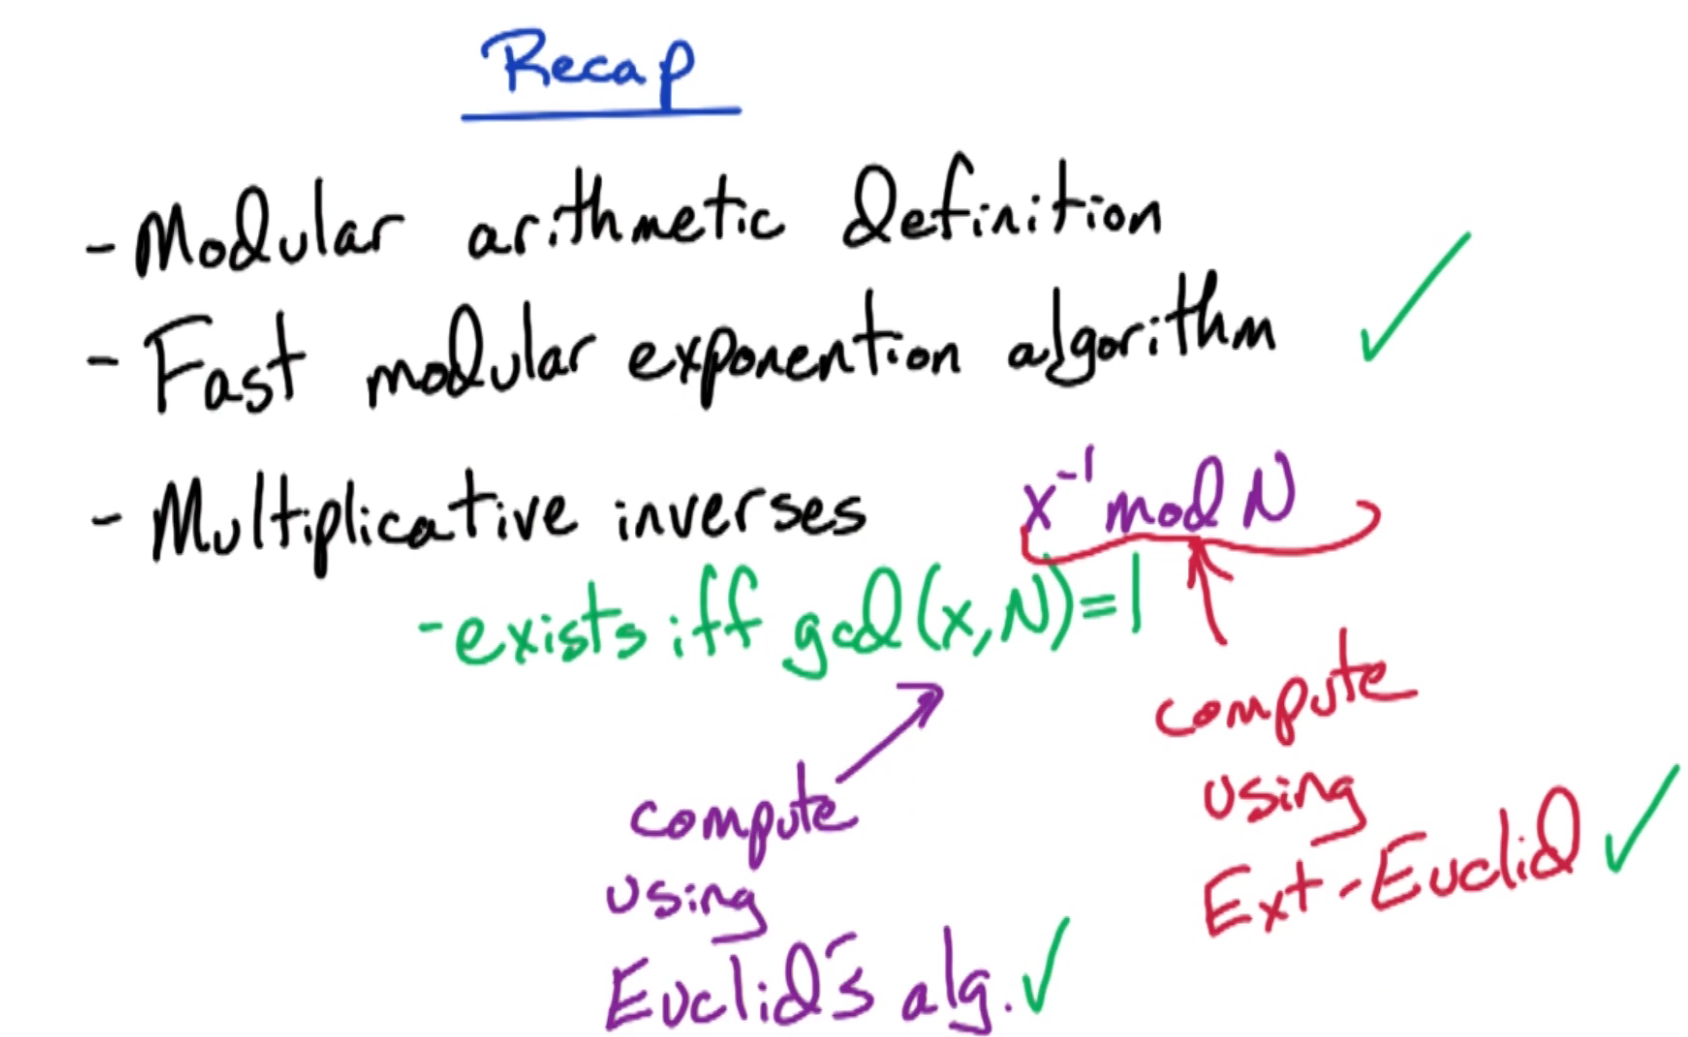 Recap
- Modular arithmetic definition
- Fast modular exponention algorithm
- Multiplicative inverses x⁻¹ mod N
- exists iff gcd(x,N)=1
compute
using
Euclid's alg.
compute
using
Ext-Euclid